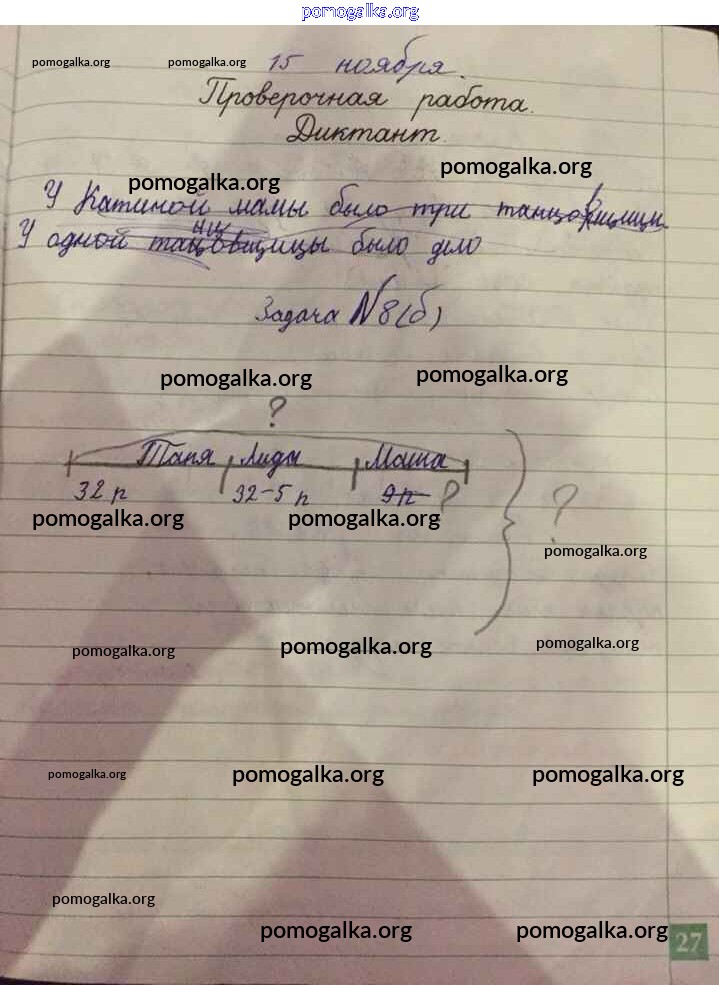 pomogalka.org
pomogalka.org pomogalka.org 15 ноября.
Проверочная работа.
Диктант.
pomogalka.org pomogalka.org
У Катиной мамы было три танцовщицы.
У одной танцовщицы было дело
Задача №8(б)
pomogalka.org pomogalka.org
?
Таня Лиды Маша
32 р 32-5 р 9 р ?
pomogalka.org pomogalka.org ?
pomogalka.org
pomogalka.org pomogalka.org pomogalka.org
pomogalka.org pomogalka.org pomogalka.org
pomogalka.org
pomogalka.org pomogalka.org 27